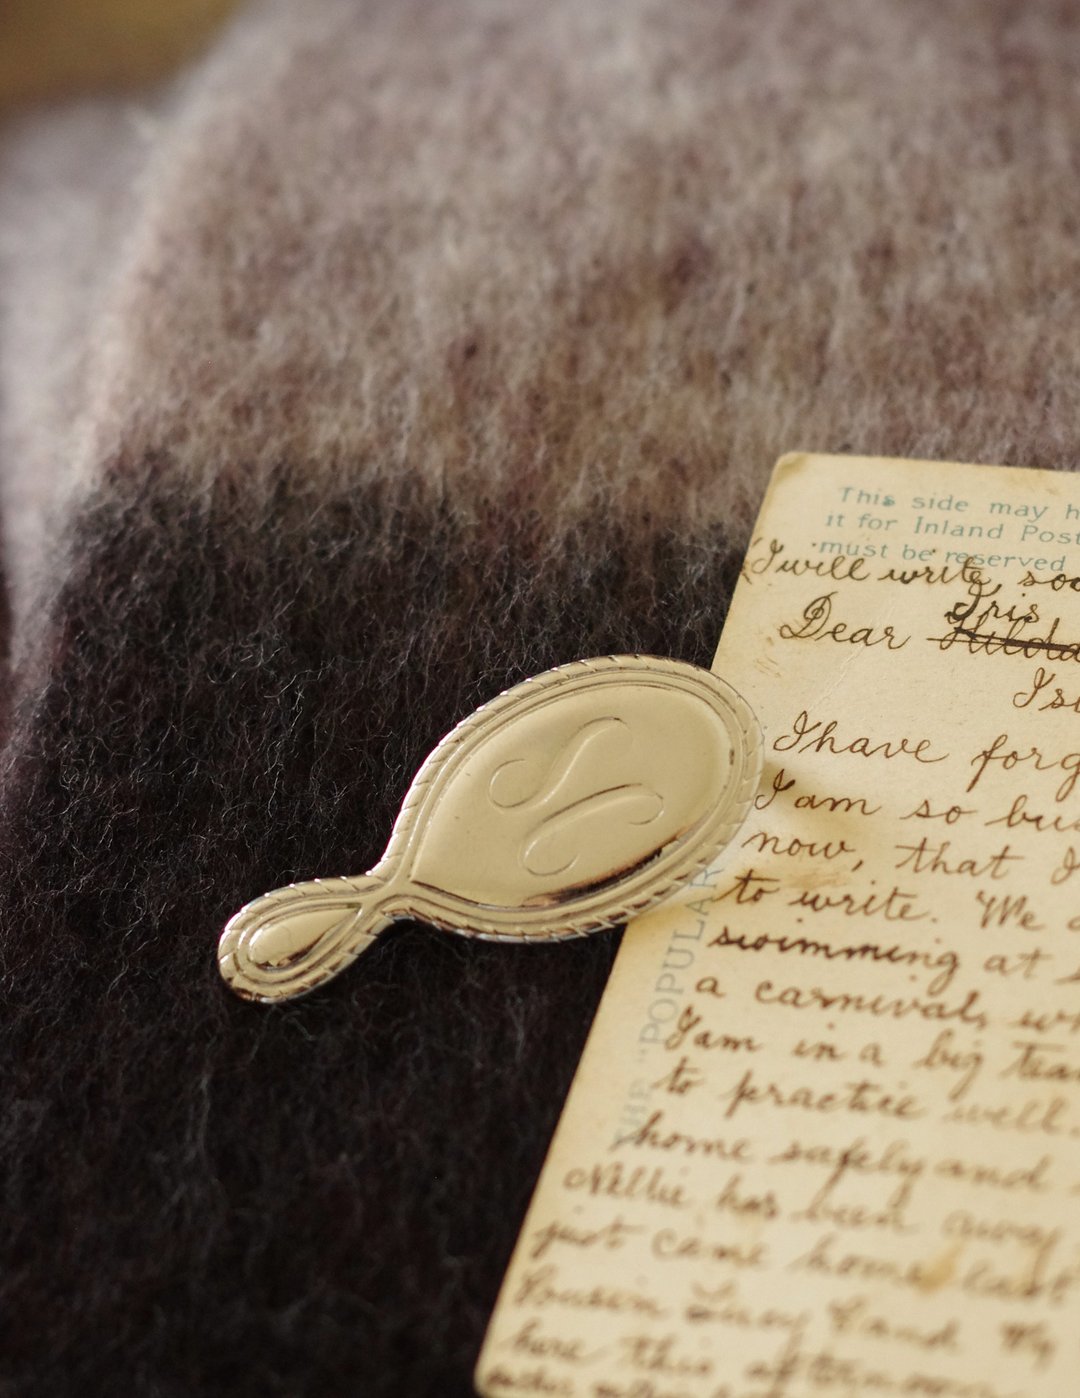 This side may h
it for Inland Post
must be reserved
I will write, soo
Iris
Dear Hilda
I have forg
I am so bus
now, that I
to write. We
swimming at
a carnival, wh
I am in a big tea
to practice well.
home safely and
Nellie has been away
just came home last
Cousin Lucy C and My
here this afternoon
THE "POPULAR